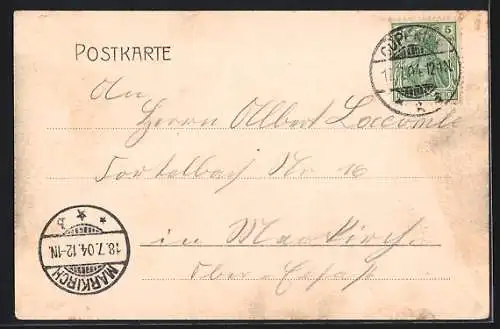 POSTKARTE
5
12-1N.
An
Herrn Albert Lacombe
Fortelbach Nr 16
in Markirch
Ober-Elsass
MARKIRCH
18.7.04.12-1N.
* b *